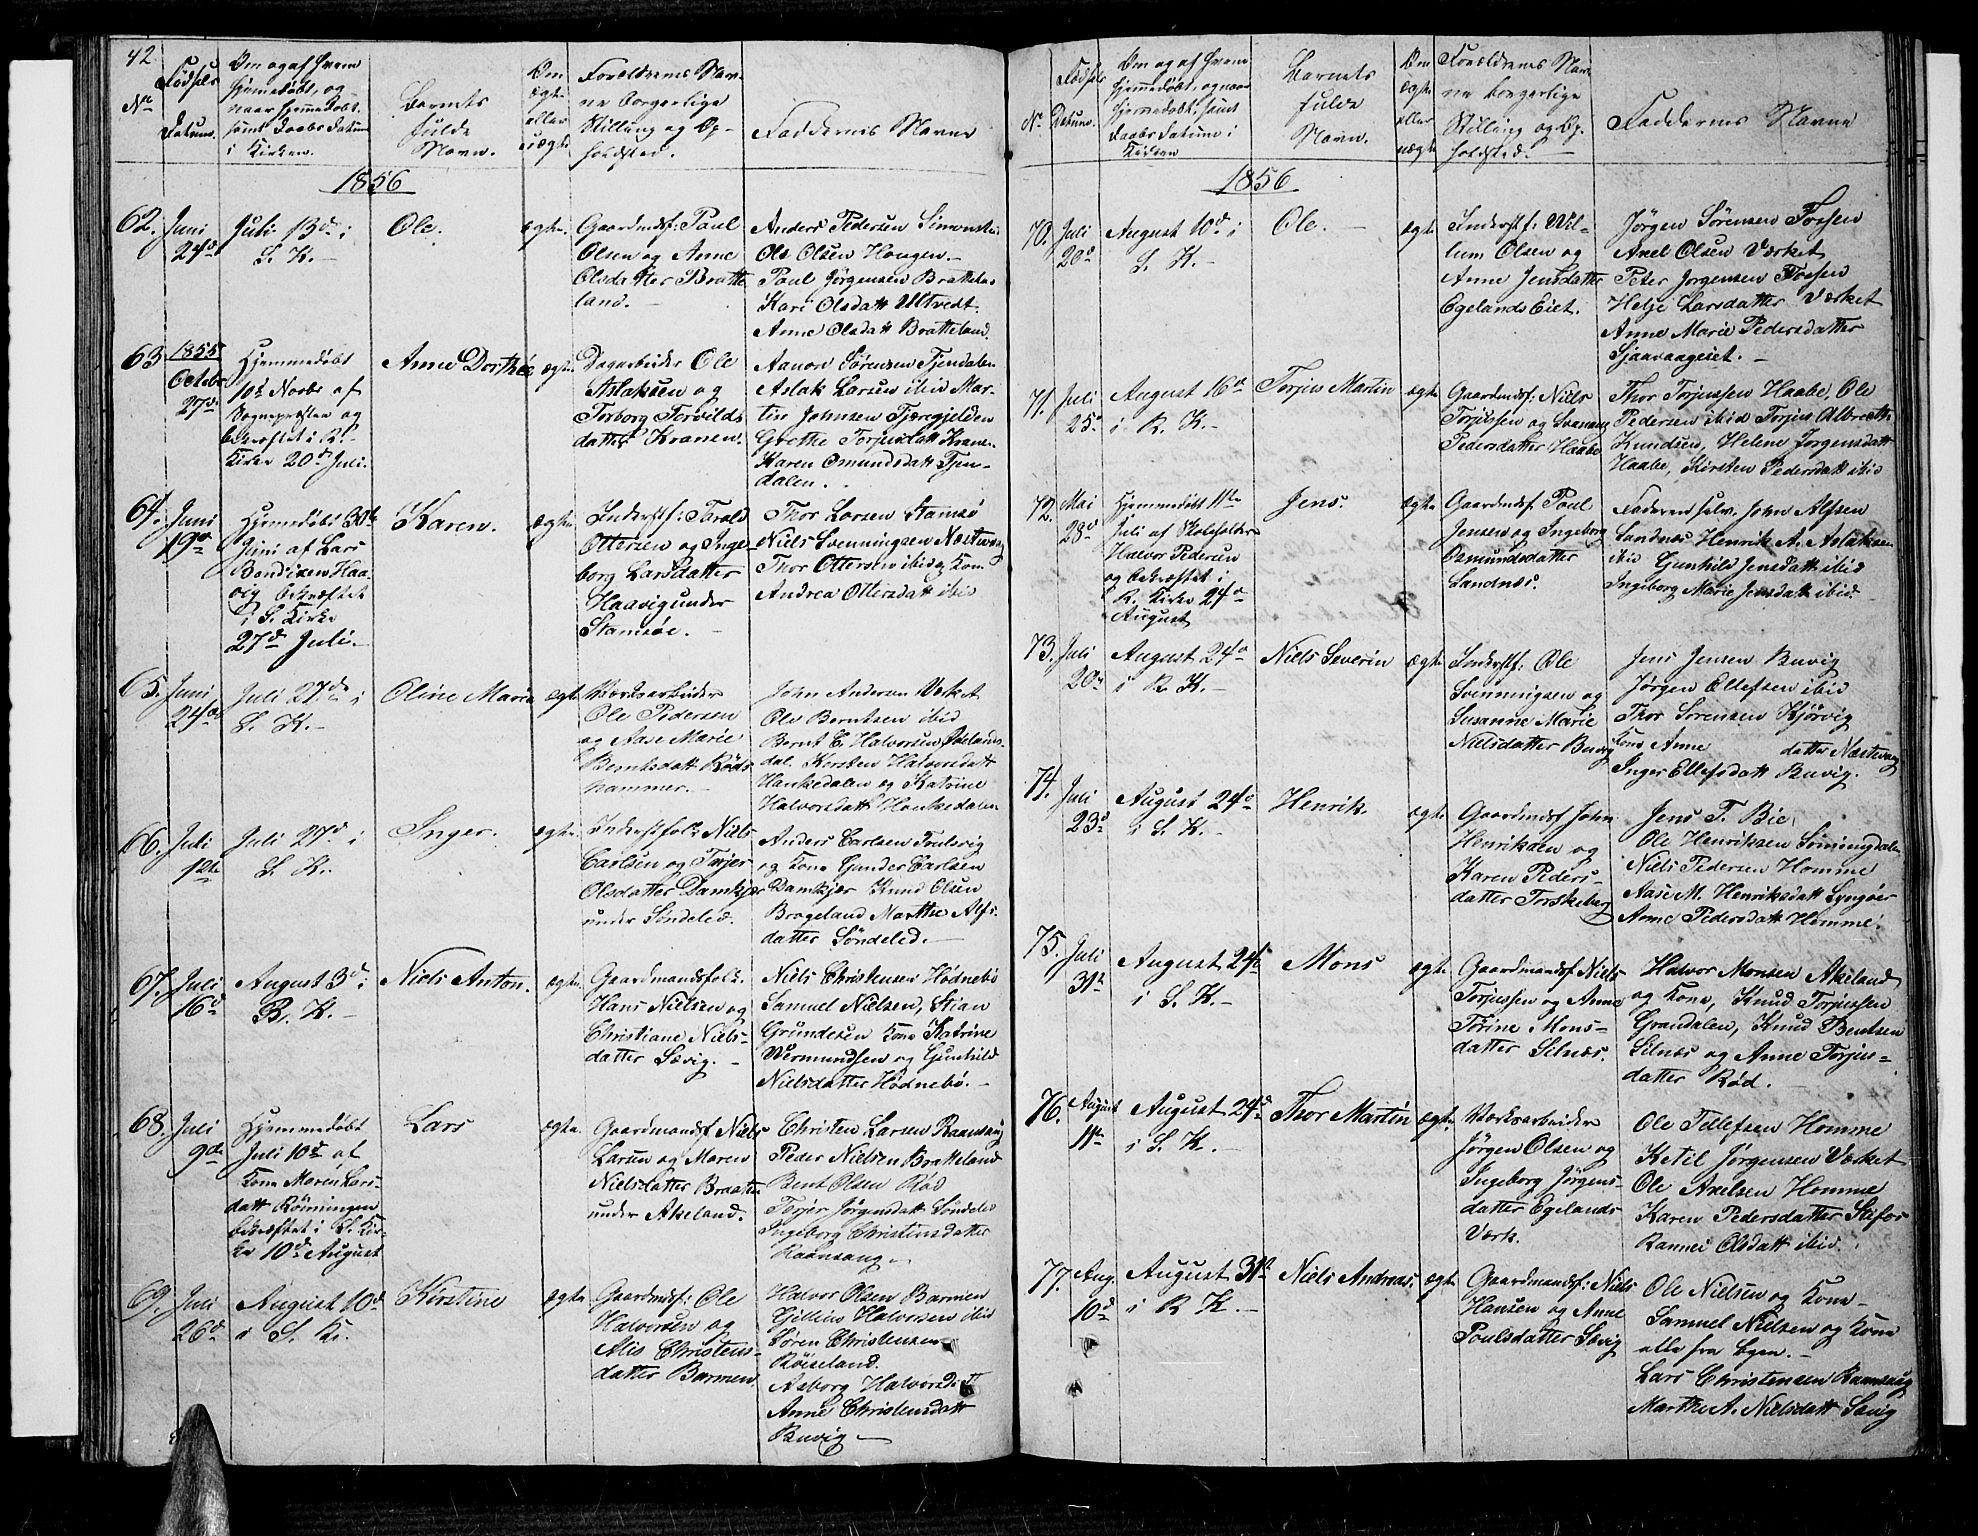 42
No
Fødsels
Datum.
Om og af hvem
hjemmedøbt, og
naar hjemmedøbt
samt Daabs Datum
i Kirken.
Barnets
fulde
Navn.
Om
ægte
eller
uægte
Forældrenes Nav-
ne borgerlige
Stilling og Op-
holdsted.
Faddernes Navne
1856
62. Juni
24de
Juli 13de i
S. K.
Ole.
ægte
Gaardmdsf: Paul
Olsen og Anne
Olsdatter Bratte
land.
Anders Pedersen
Ole Olsen Haugen
Paul Jørgensen
Kari Olsdatt Ultvedt
Anne Olsdatt Bratteland
63 1855
Octobr
27de
Hjemmedøbt
10d Novbr af
Sognepræsten og
bekræftet i R.
Kirke 20d Juli.
Anne Dorthea
ægte
Dagarbeider Ole
Aslaksen og
Torborg Torvilds
datter Kranen.
Aanon Sørensen Fjendalen
Aslak Larsen ibid Mar-
tin Johnsen
Grethe Torjusdatt
Karen Omundsdatt Fjen-
dalen.
64. Juni
19de
Hjemmedøbt 30te
Juni af Lars
Bendixen Haa-
og bekræftet
i S. Kirke
27de Juli.
Karen.
ægte
Inderstf: Tarald
Ottersen og Inge-
borg Larsdatter
Haavig under
Stamsøe.
Thor Larsen Stamsø
Niels Svenningsen Næstvog
Thor Ottersen ibid og Kone
Andrea Ottersdatt ibid
65. Juni
24de
Juli 27de i
S. K.
Oline Maria
ægte
Værksarbeider
Ole Pedersen
og Aase Marie
Berntsdatt Røds
hammer.
John Andersen Værket
Ole Berntsen ibid
Bernt E. Halvorsen
dal. Kersten Halvorsdatt
Hankedalen og Katrine
Halvorsdatt Hankedalen
66. Juli
12te
Juli 27d i
S. K.
Inger.
ægte
Inderstfolk Niels
Carlsen og Terjer
Olsdatter Damkjer
under Søndeled.
Anders Carlsen
og Kone Gunder Carlsen
Damkjer Knud Olsen
Brogeland Marthe Alfs
datter Søndeled.
67. Juli
16d
August 3d i
R. K.
Niels Anton.
ægte
Gaardmandsfolk
Hans Nielsen og
Christiane Niels-
datter Sævig.
Niels Christensen Hødnebø
Samuel Nielsen, Stian
Grundesen Kone Katrine
Wermundsen og Gunhild
Nielsdatter Hødnebø.
68. Juli
9de
Hjemmedøbt
Juli 10d af
Kone Maren Lars-
datt Rønningen
bekræftet i S. Kir-
ke 10de August
Lars
ægte
Gaardmandsf Niels
Larsen og Maren
Nielsdatter Braaten
under Akeland.
Christen Larsen Ramsaug
Peder Nielsen Bratteland
Bent Olsen Rød
Terjer Jørgensdatt Søndeled
Ingeborg Christensdatter
Ramsaug
69. Juli
26d
August 10d
i S. K.
Kirstine
ægte
Gaardmdsf: Ole
Halvorsen og
Alis Christens-
datter Barmen
Halvor Olsen Barmen
Halvorsen ibid
Søren Christensen
Røiseland.
Aaborg Halvorsd
Anne Christensdatt
Buvig
No
Fødsels
Datum.
Om og af hvem
hjemmedøbt, og naar
hjemmedøbt, samt
Daabs Datum i
Kirken
Barnets
fulde
Navn.
Om
ægte
eller
uægte
Forældrenes Nav-
ne borgerlige
Stilling og Op-
holdsted.
Faddernes Navne
1856
70. Juli
20d
August 10d i
S. K.
Ole.
ægte
Inderstf: Wil-
lum Olsen og
Anne Jensdatter
Egelands Eiet.
Jørgen Sørensen Fossen
Axel Olsen Værket
Peter Jørgensen Fossen
Helje Larsdatter Værket
Anne Marie Pedersdatter
71. Juli
25d
August 16de
i R. K.
Torjus Martin
ægte
Gaardmdsf: Niels
Torjussen og
Pedersdatter Haabe
Thor Torjussen Haabe, Ole
Pedersen ibid Torjus Albrecth
Knudsen, Helene Jørgensdatt
Haabe, Kirsten Pedersdatt ibid
72. Mai
28d
Hjemmedøbt 11te
Juli af Skoleholder
Halvor Pedersen
og bekræftet i
R. Kirke 24de
August
Jens.
ægte
Gaardmdsf: Paul
Jensen og Ingeborg
Osmundsdatter
Sandnæs.
Faderen selv. John Alfsen
Sandnæs Henrik A. Aslaksen
ibid Gunhild Jensdatt ibid
Ingeborg Marie Jensdatt ibid
73. Juli
20de
August 24de
i R. K.
Niels Severin
ægte
Inderstf: Ole
Svenningsen og
Susanne Marie
Nielsdatter Buvig
Jens Jensen Buvig
Jørgen Ellefsen ibid
Thor Sørensen Kjørvig
Kone Anne datter Næstvog
Inger Ellefsdatt Buvig.
74. Juli
23d
August 24de
i S. K.
Henrik
ægte
Gaardmdsf John
Henriksen og
Karen Peders-
datter Torskeberg
Jens T. Bie,
Ole Henriksen
Niels Pedersen Homme
Aase M. Henriksdatt Lyngøer
Anne Pedersdatt Homme.
75. Juli
31te
August 24de
i S. K.
Mons
ægte
Gaardmandsf Niels
Torjussen og Anne
Torine Mons-
datter Selnæs.
Halvor Monsen Akeland
og Kone, Knud Torjussen
Grandalen, Knud Bentsen
Selnæs og Anne Torjus-
datter Rød.
76. August
11te
August 24de
i S. K.
Thor Martin
ægte
Værksarbeider
Jørgen Olsen og
Ingeborg Jørgens-
datter Egelands
Værk.
Ole Tellefsen Homme
Ketil Jørgensen Værket
Ole Axelsen Homme
Karen Pedersdatter Stifos
Rannei Olsdatt ibid.
77. Aug.
10d
August 31te
i R K.
Niels Andreas.
ægte
Gaardmandsf: Niels
Hansen og Anne
Poulsdatter Sævig
Ole Nielsen og Kone
Samuel Nielsen og Kone
alle fra
Lars Christensen Ramsaug
Marthe A. Nielsdatt Sævig